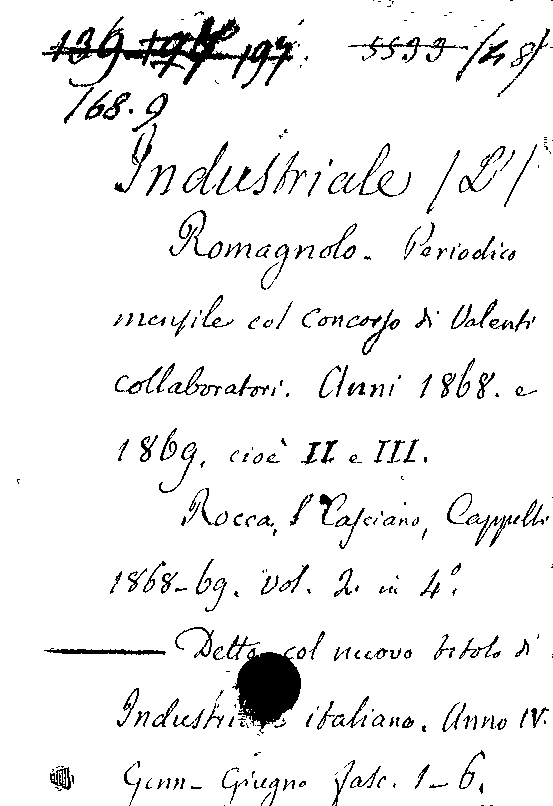 139 197. 5533 /48/
168.9
Industriale /L'/
Romagnolo. Periodico
mensile col concorso di valenti
collaboratori. Anni 1868. e
1869. cioè II e III.
Rocca, S. Casciano, Cappelli
1868-69. vol. 2. in 4°.
Detto col nuovo titolo di
Industriale italiano. Anno IV.
Genn- Giugno fasc. 1-6.